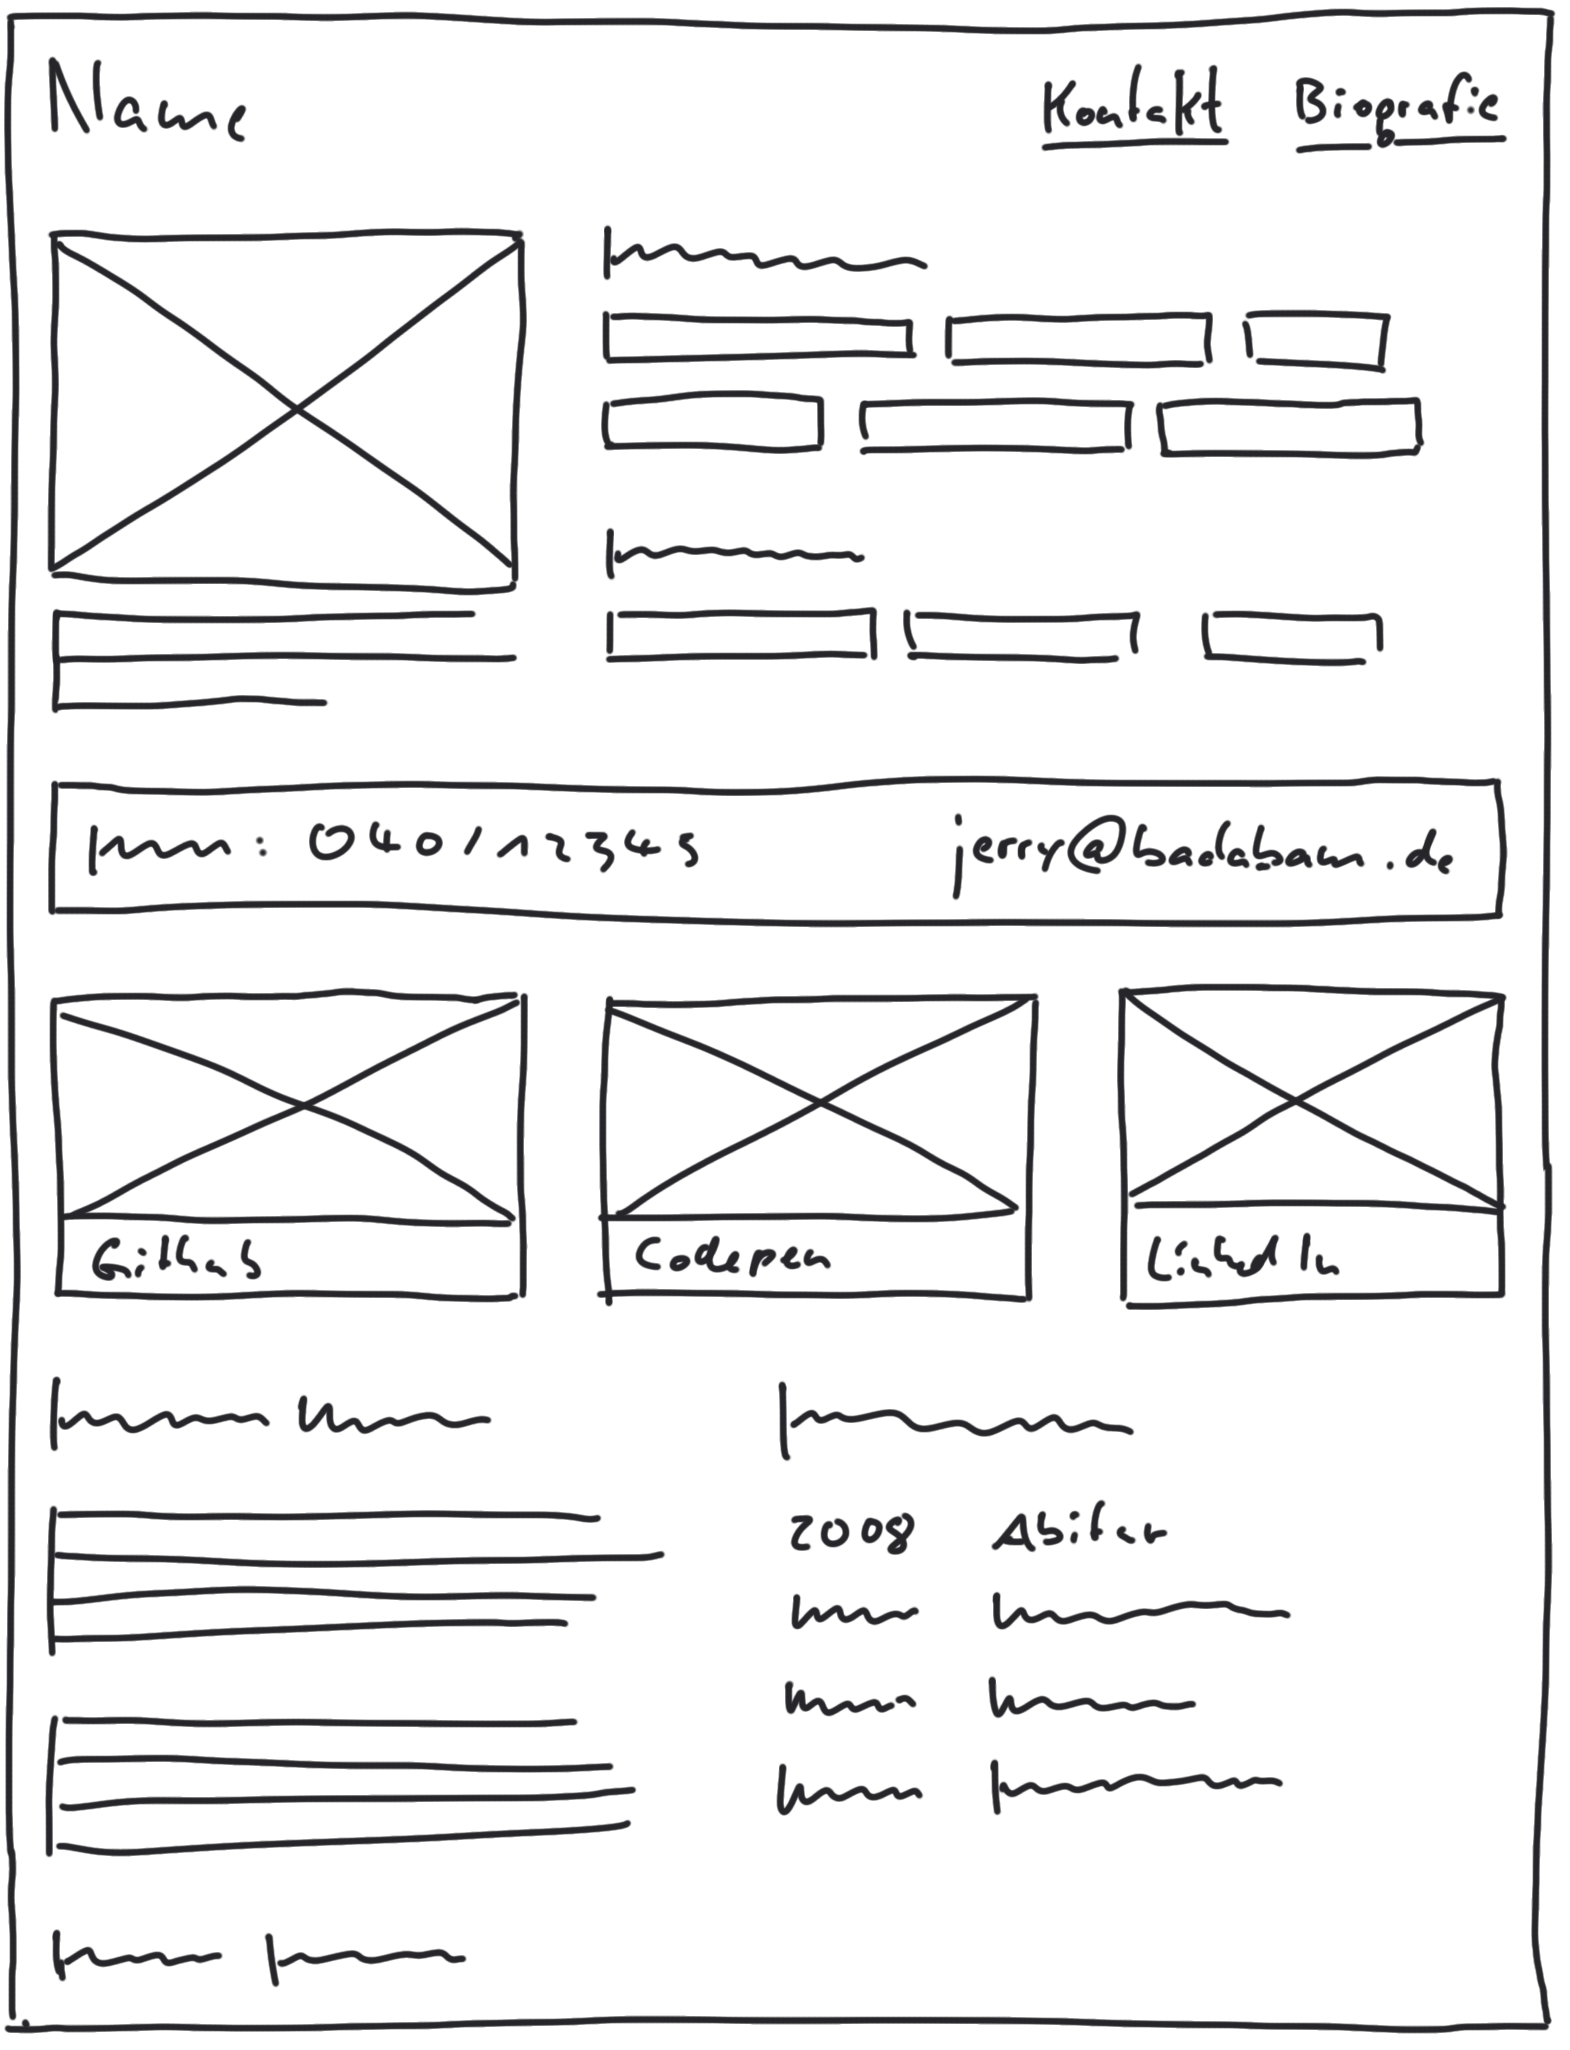 Name Kontakt Biografie
: 040/12345 jerry@badabam.de
Github Codepen LinkedIn
2008 Abitur